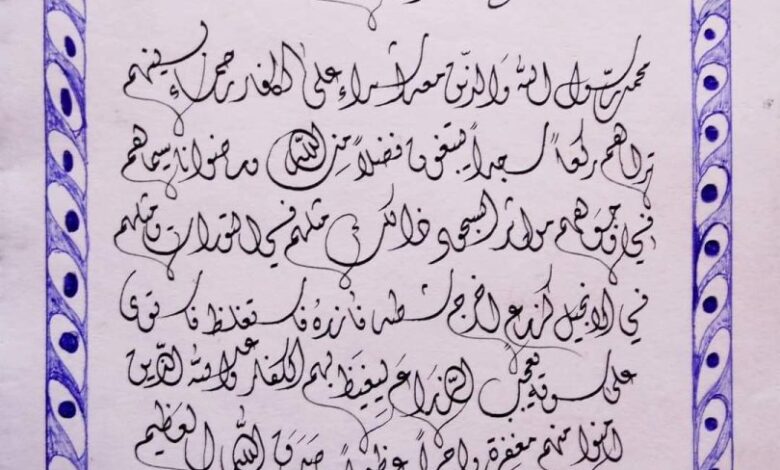 محمد رسول الله والذين معه اشداء على الكفار رحماء بينهم
تراهم ركعاً سجداً يبتغون فضلاً من الله ورضوانا سيماهم
في وجوههم من اثر السجود ذالك مثلهم في التورات ومثلهم
في الانجيل كزرع اخرج شطه فازره فاستغلظ فاستوى
على سوقه يعجب الزراع ليغيظ بهم الكفار وعد الله الذين
امنوا منهم مغفرة واجراً عظيماً صدق الله العظيم